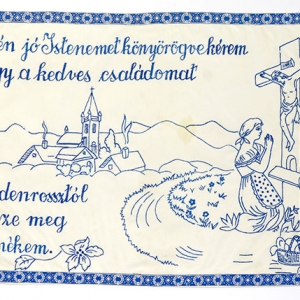 én jó Istenemet könyörögve kérem
gy a kedves családomat
denrossztól
ze meg
nékem.